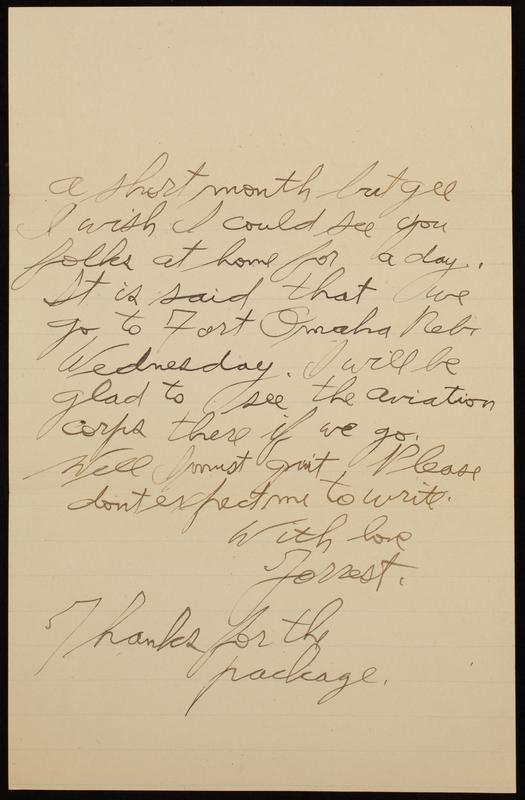 a short month but gee
I wish I could see you
folks at home for a day.
It is said that we
go to Fort Omaha Nebr
Wednesday. I will be
glad to see the aviation
corps there if we go.
Well I must quit. Please
dont expect me to write.
With love
Forrest.
Thanks for the
package.